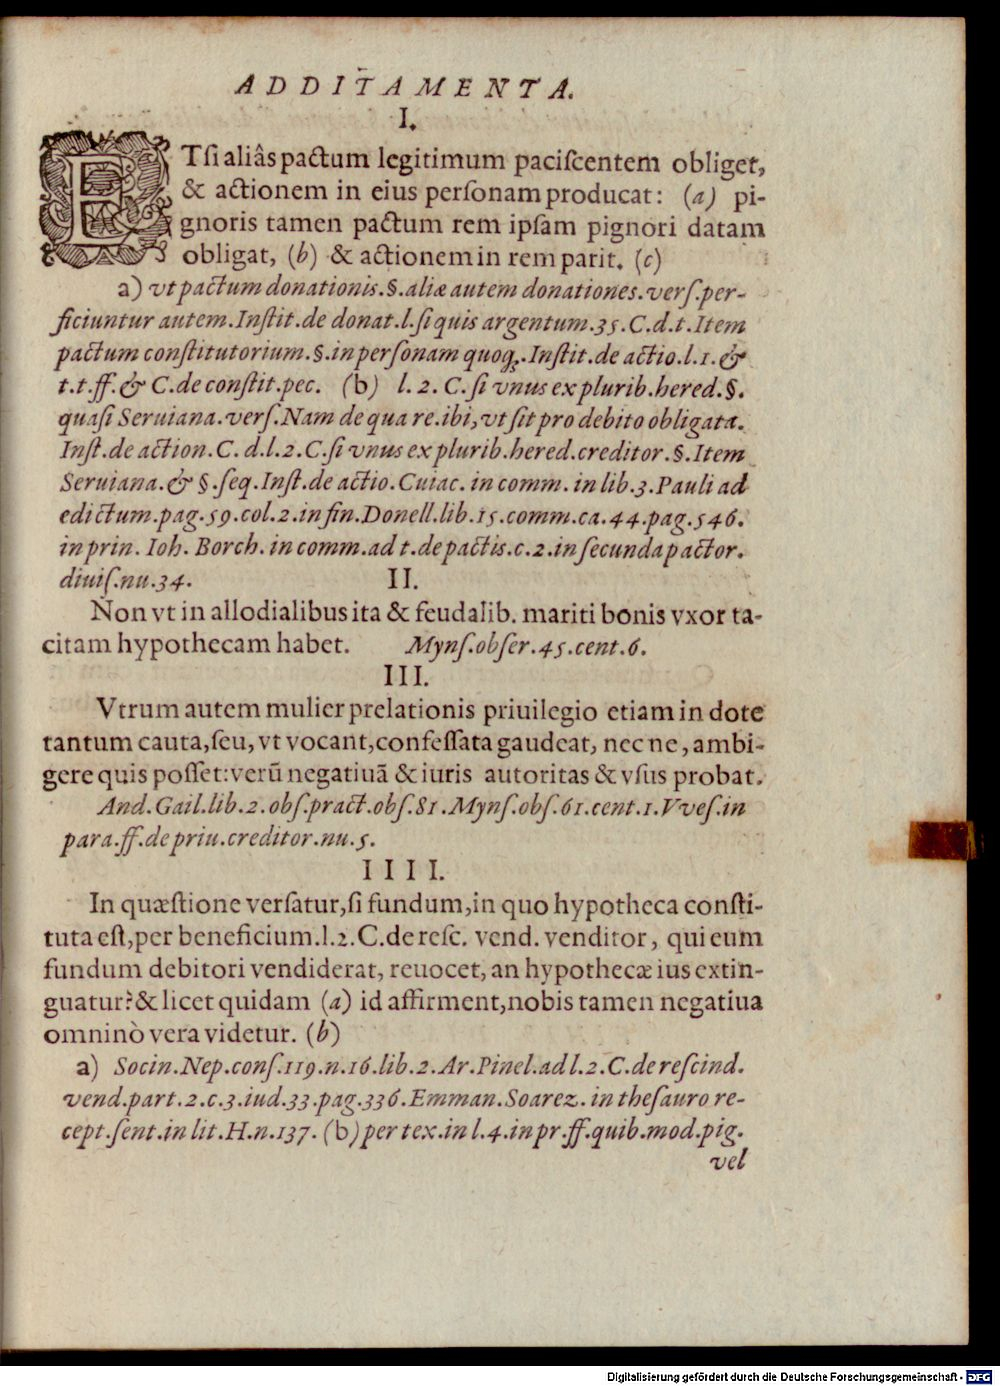 ADDITAMENTA.
I.
ETsi aliâs pactum legitimum paciſcentem obliget,
& actionem in eius perſonam producat: (a) pi-
gnoris tamen pactum rem ipſam pignori datam
obligat, (b) & actionem in rem parit. (c)
a) vt pactum donationis.§.aliæ autem donationes.verſ.per-
ficiuntur autem.Inſtit.de donat.l.ſi quis argentum.35.C.d.t.Item
pactum conſtitutorium.§.in perſonam quoq;.Inſtit.de actio.l.1.&
t.t.ff.& C.de conſtit.pec. (b) l.2.C.ſi vnus ex plurib.hered.§.
quaſi Seruiana.verſ.Nam de qua re.ibi,vt ſit pro debito obligata.
Inſt.de action.C.d.l.2.C.ſi vnus ex plurib.hered.creditor.§.Item
Seruiana.& §.ſeq.Inſt.de actio.Cuiac. in comm. in lib.3.Pauli ad
edictum.pag.59.col.2.in fin.Donell.lib.15.comm.ca.44.pag.546.
in prin. Ioh. Borch. in comm.ad t.de pactis.c.2.in ſecunda pactor.
diuiſ.nu.34.
II.
Non vt in allodialibus ita & feudalib. mariti bonis vxor ta-
citam hypothecam habet. Mynſ.obſer.45.cent.6.
III.
Vtrum autem mulier prelationis priuilegio etiam in dote
tantum cauta,ſeu, vt vocant,confeſſata gaudeat, nec ne, ambi-
gere quis poſſet:verũ negatiuã & iuris autoritas & vſus probat.
And.Gail.lib.2.obſ.pract.obſ.81.Mynſ.obſ.61.cent.1.Vveſ.in
para.ff.de priu.creditor.nu.5.
IIII.
In quæſtione verſatur,ſi fundum,in quo hypotheca conſti-
tuta eſt,per beneficium.l.2.C.de reſc. vend. venditor, qui eum
fundum debitori vendiderat, reuocet, an hypothecæ ius extin-
guatur?& licet quidam (a) id affirment,nobis tamen negatiua
omninò vera videtur. (b)
a) Socin.Nep.conſ.119.n.16.lib.2.Ar.Pinel.ad l.2.C.de reſcind.
vend.part.2.c.3.iud.33.pag.336.Emman.Soarez. in theſauro re-
cept.ſent.in lit.H.n.137. (b) per tex.in l.4.in pr.ff.quib.mod.pig.
vel
Digitalisierung gefördert durch die Deutsche Forschungsgemeinschaft - DFG